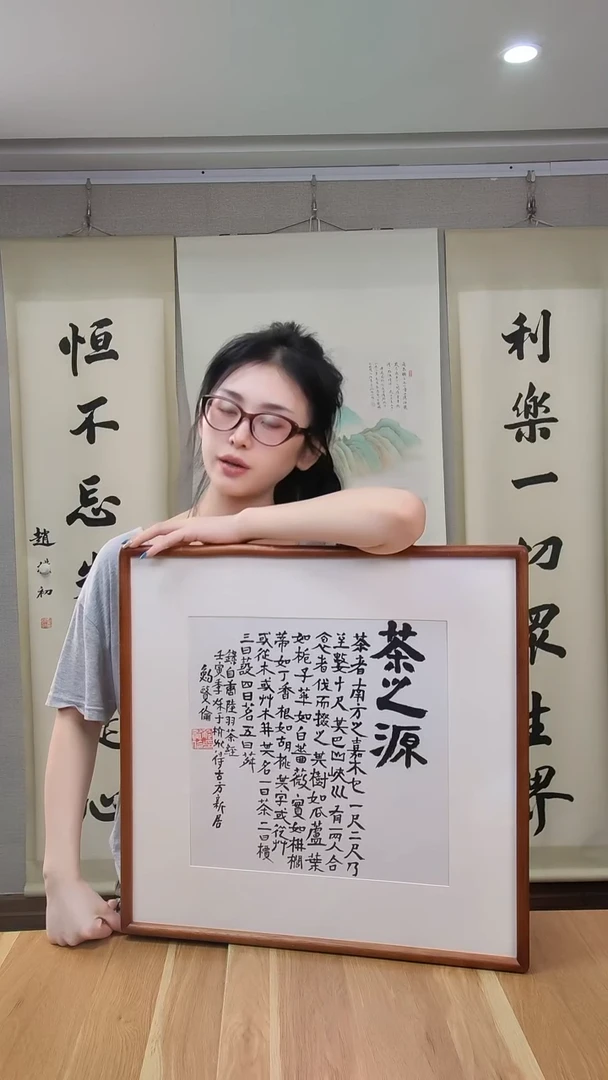 利樂一切眾生界
恒不忘
心
趙
初
茶之源
茶者南方之嘉木也一尺二尺乃
至數十尺其巴山峽川有兩人合
者伐而掇之其樹如瓜蘆葉
如梔子華如白薔薇實如栟櫚
蒂如丁香根如胡桃其字或從艸
或從木或艸木并其名一曰茶二曰檟
三曰蔎四曰茗五曰荈
錄自唐陸羽茶經
壬寅季秋于杭州得古方新居
賢倫